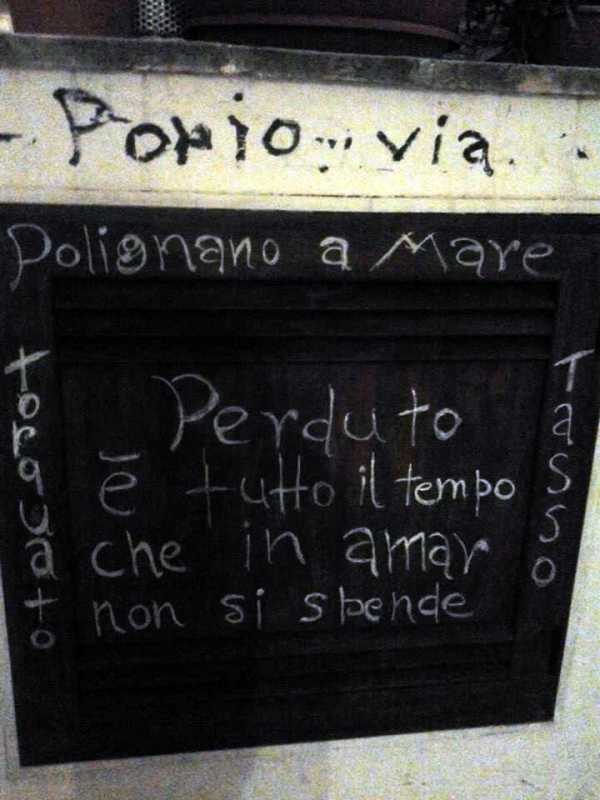 Polignano a Mare
Torquato
Perduto
è tutto il tempo
che in amar
non si spende
Tasso